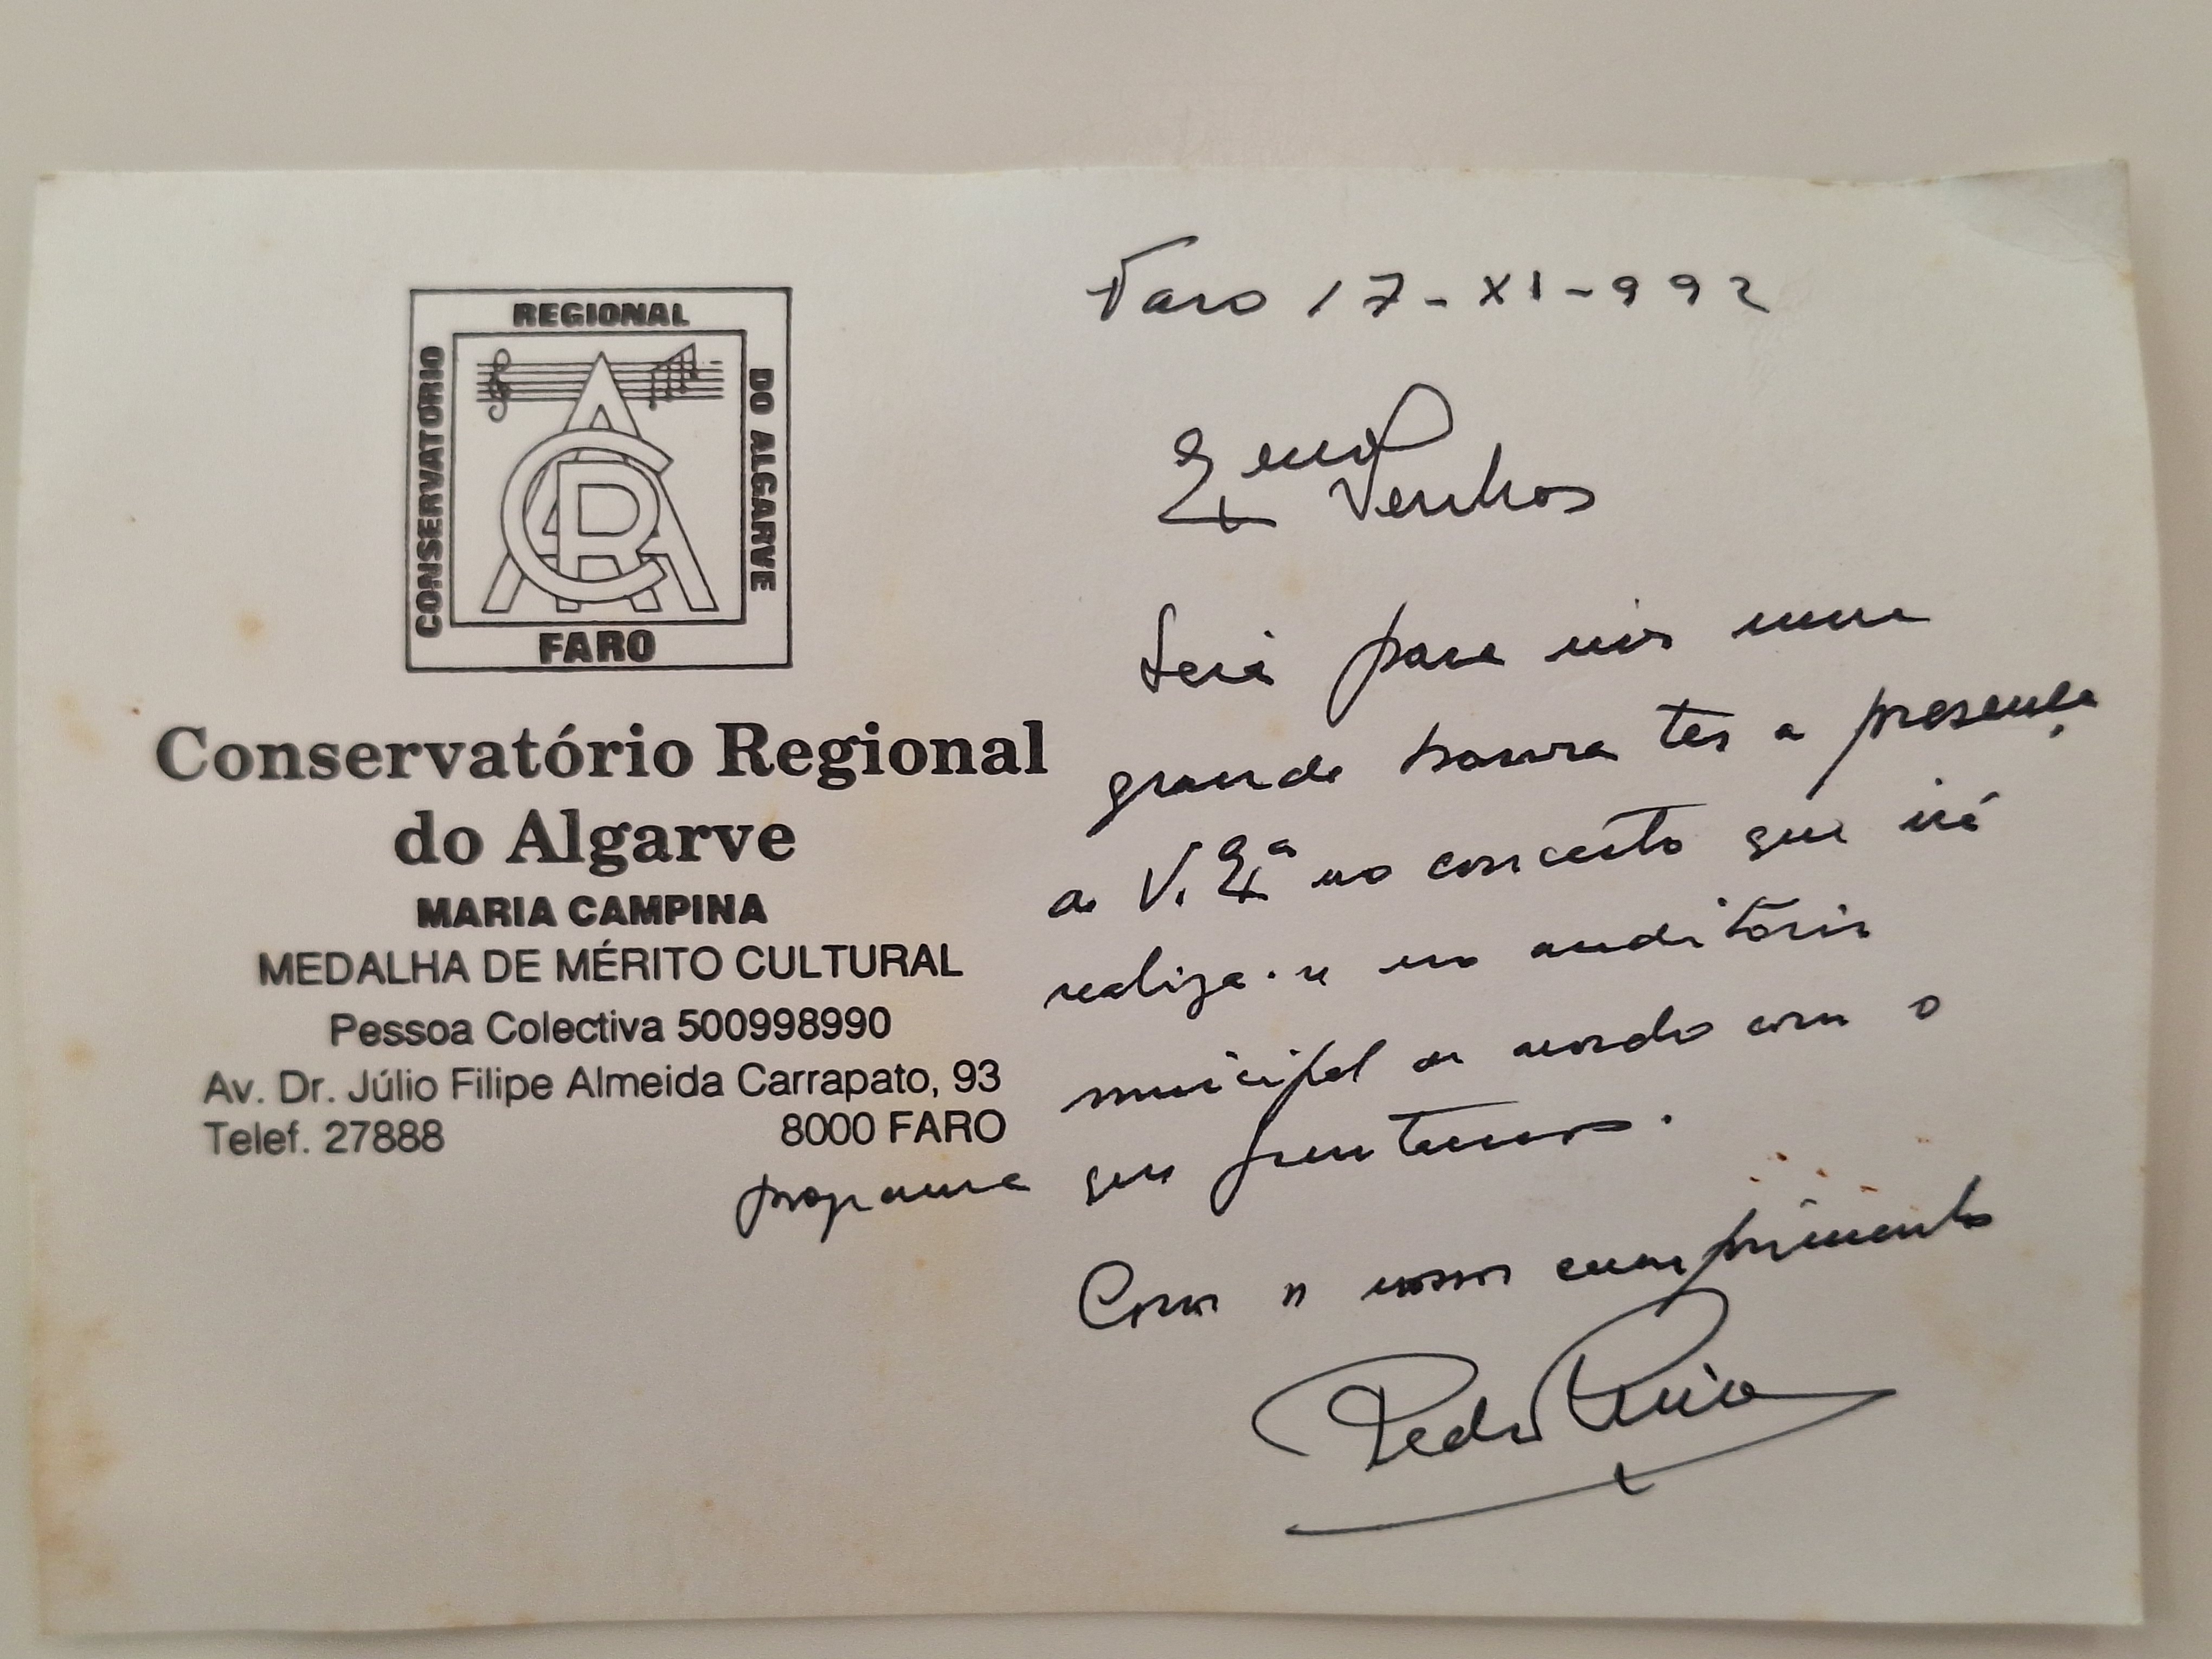 REGIONAL
CONSERVATÓRIO
DO ALGARVE
FARO
Conservatório Regional
do Algarve
MARIA CAMPINA
MEDALHA DE MÉRITO CULTURAL
Pessoa Colectiva 500998990
Av. Dr. Júlio Filipe Almeida Carrapato, 93
Telef. 27888 8000 FARO
Faro 17-XI-992
Será para nós uma
grande honra ter a presença
de V. Exª no concerto que irá
realizar-se no auditório
municipal de acordo com o
programa que juntamos.
Com os nossos cumprimentos
Pedro